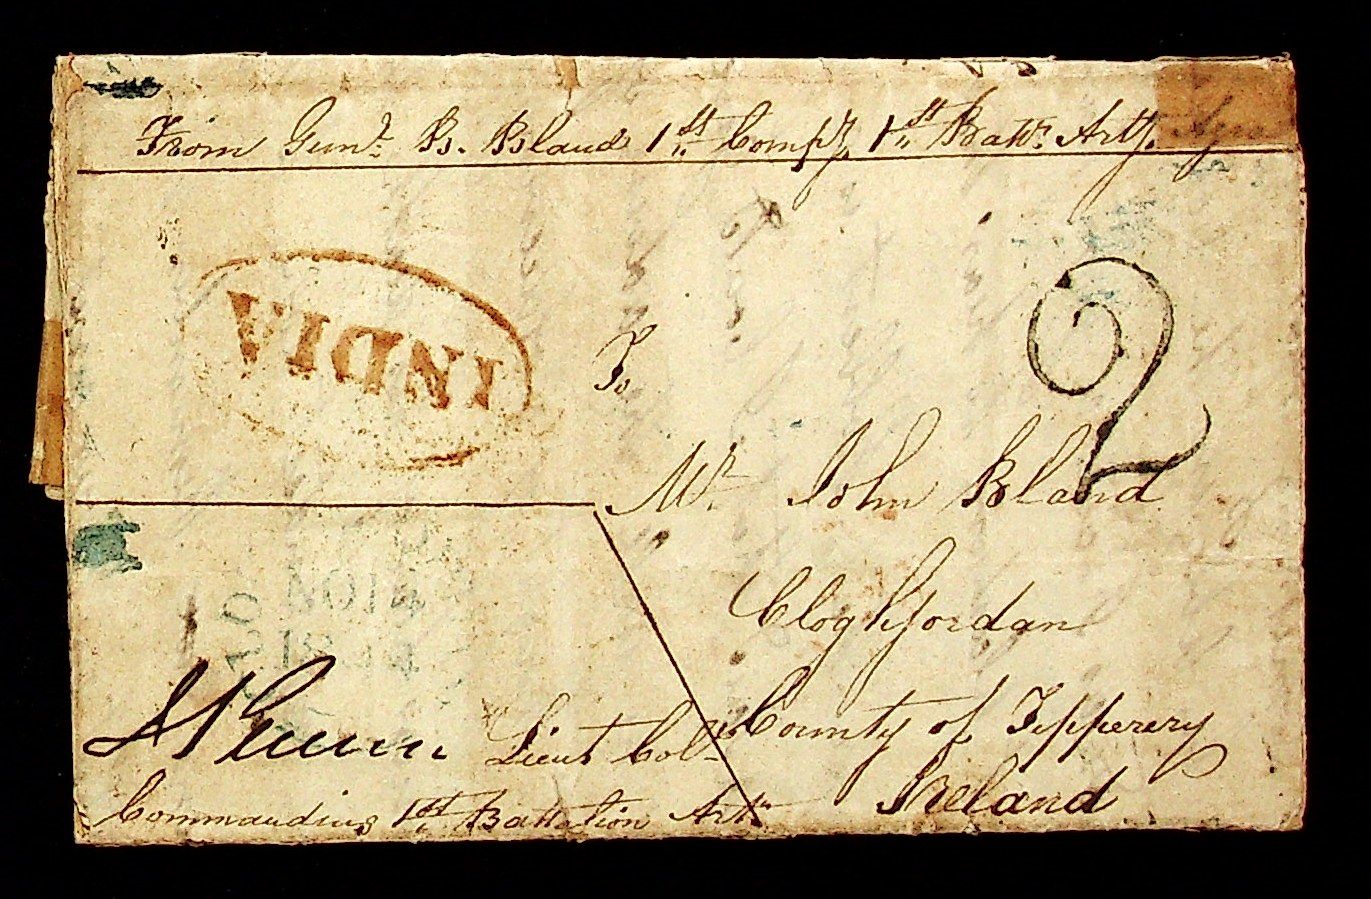 From Gunr. B. Bland 1st. Compy. 1st. Battn. Arty. Agra
INDIA
2
To
Mr. John Bland
Cloghjordan
County of Tipperery
Ireland
NO 14
Lieut Col.
Commanding 1st. Battalion Arty.